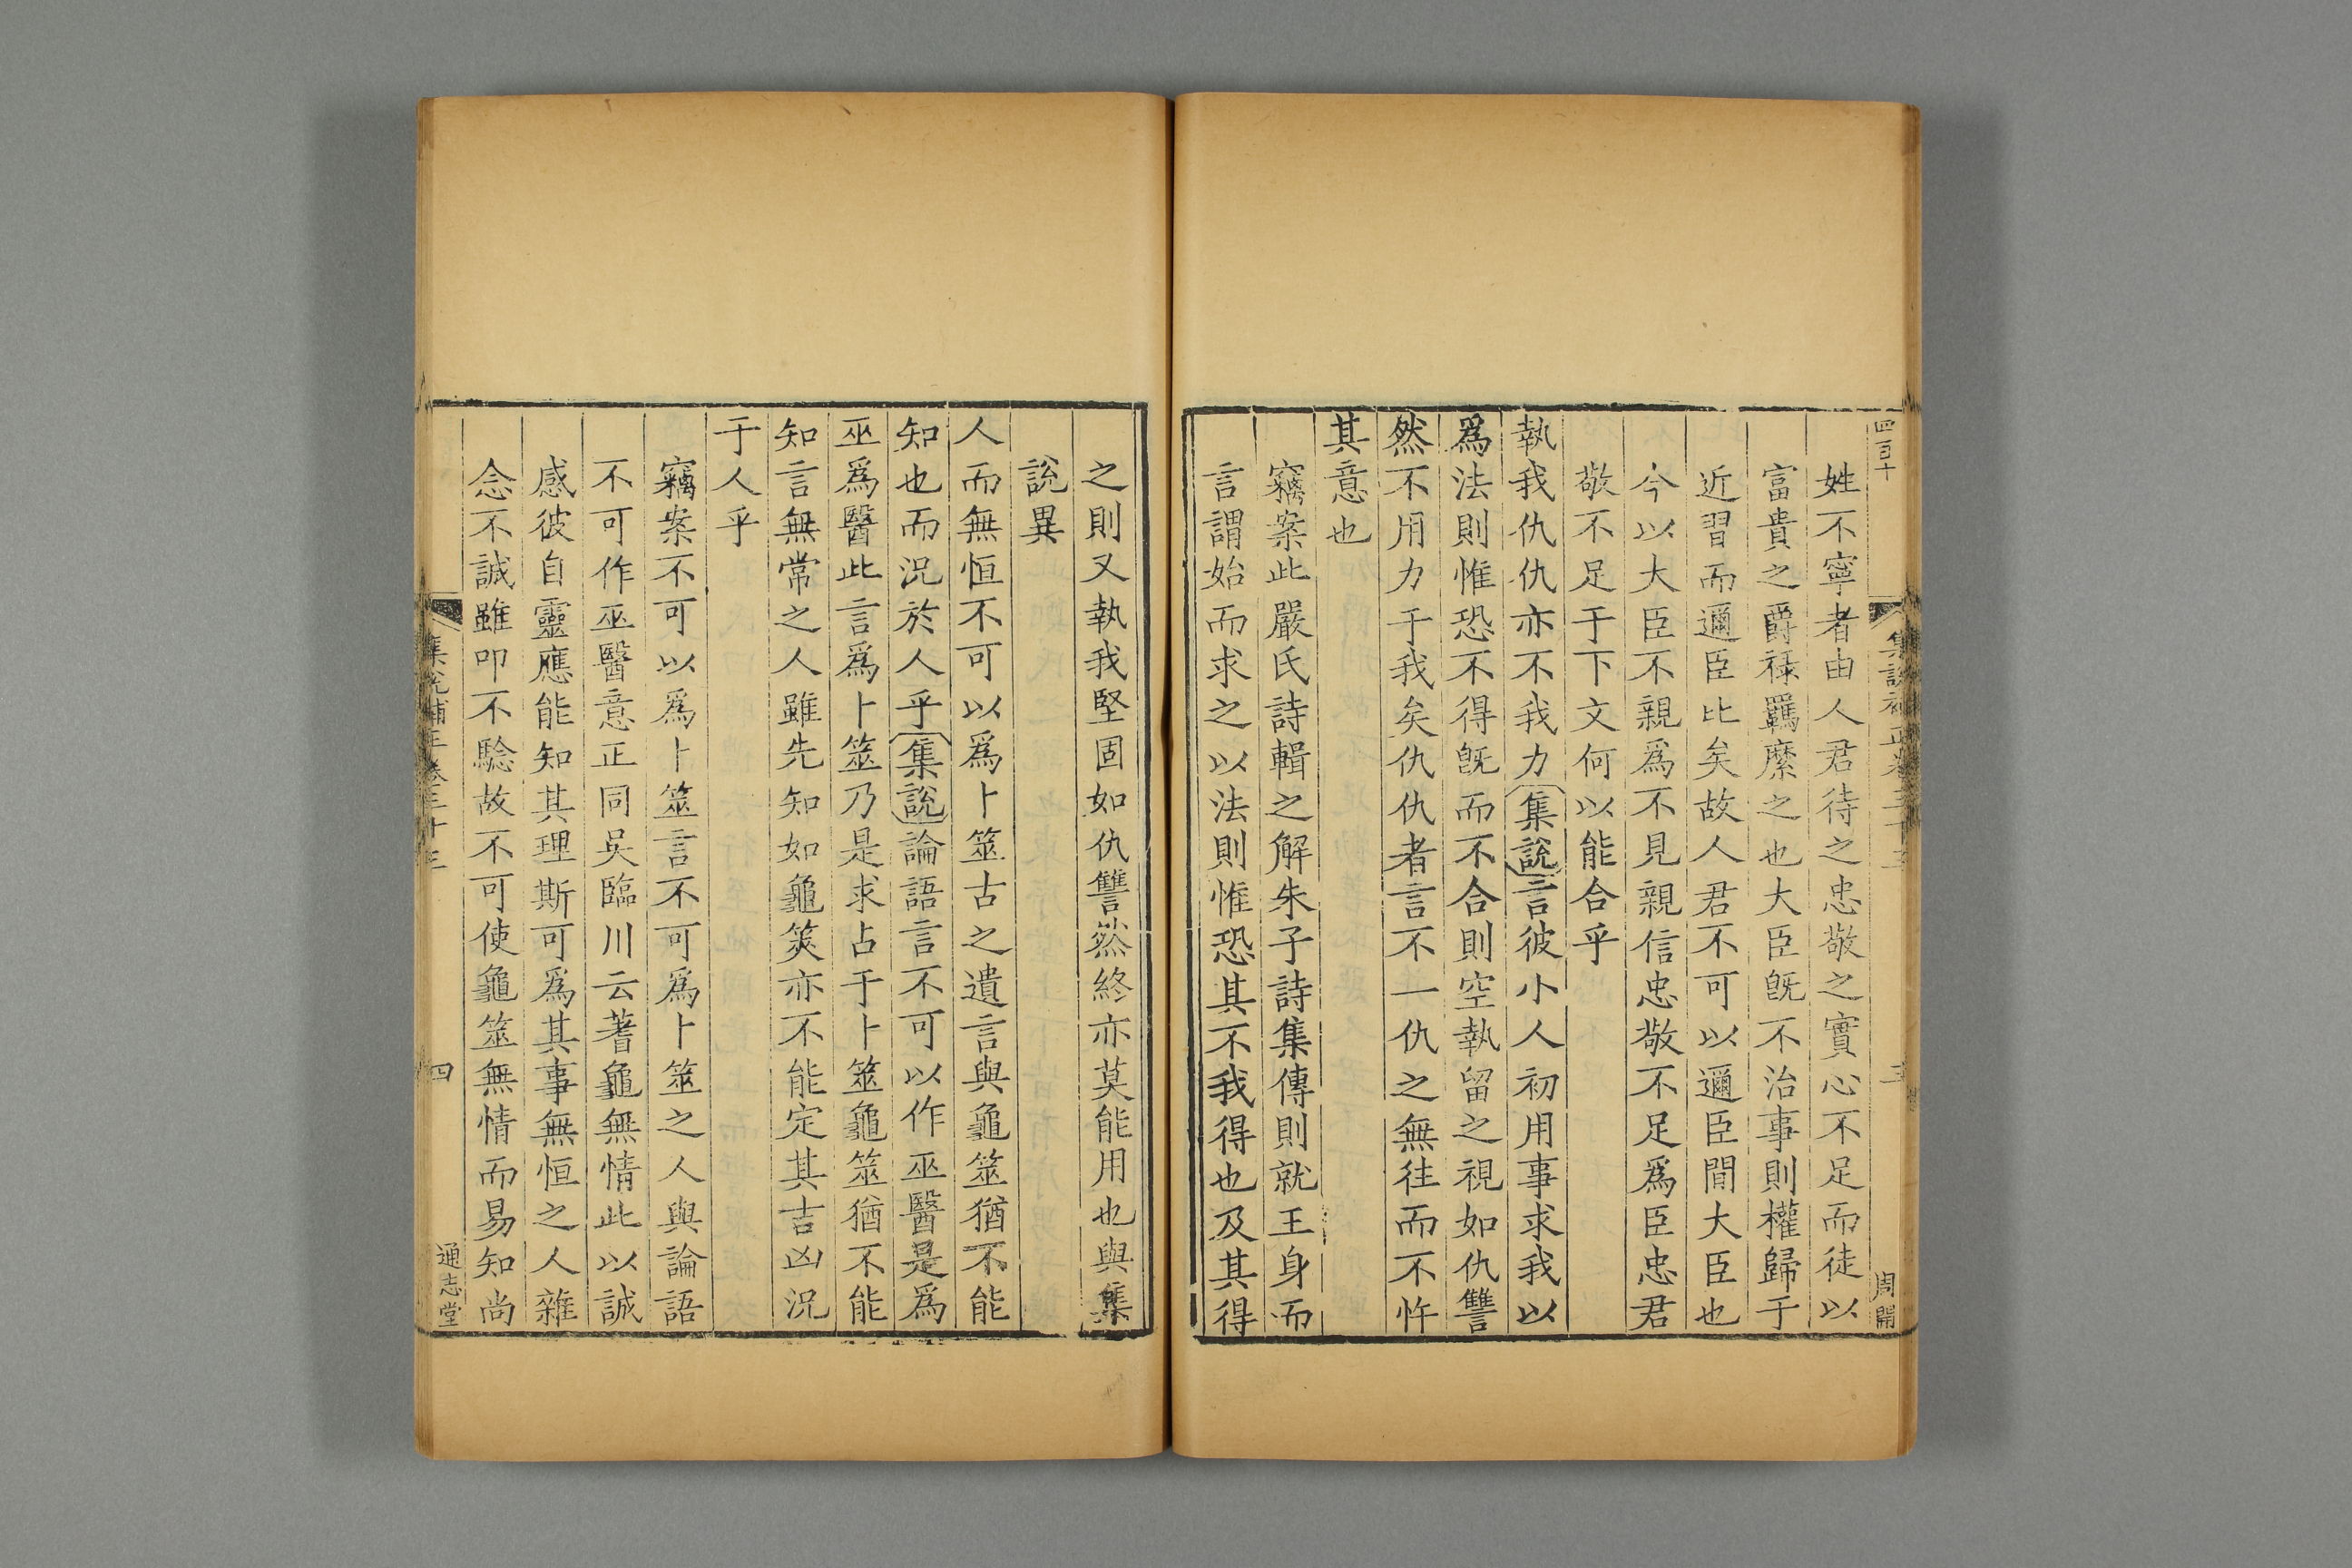 四百十
集說補正卷三十三
三
周開
姓不寧者由人君待之忠敬之實心不足而徒以
富貴之爵祿羈縻之也大臣旣不治事則權歸于
近習而邇臣比矣故人君不可以邇臣間大臣也
今以大臣不親爲不見親信忠敬不足爲臣忠君
敬不足于下文何以能合乎
執我仇仇亦不我力集說言彼小人初用事求我以
爲法則惟恐不得旣而不合則空執留之視如仇讐
然不用力于我矣仇仇者言不一仇之無往而不忤
其意也
竊案此嚴氏詩輯之解朱子詩集傳則就王身而
言謂始而求之以法則惟恐其不我得也及其得
之則又執我堅固如仇讐然終亦莫能用也與集
說異
人而無恒不可以爲卜筮古之遺言與龜筮猶不能
知也而況於人乎集說論語言不可以作巫醫是爲
巫爲醫此言爲卜筮乃是求占于卜筮龜筮猶不能
知言無常之人雖先知如龜筴亦不能定其吉凶況
于人乎
竊案不可以爲卜筮言不可爲卜筮之人與論語
不可作巫醫意正同吳臨川云蓍龜無情此以誠
感彼自靈應能知其理斯可爲其事無恒之人雜
念不誠雖叩不驗故不可使龜筮無情而易知尚
集說補正卷三十三
四
通志堂